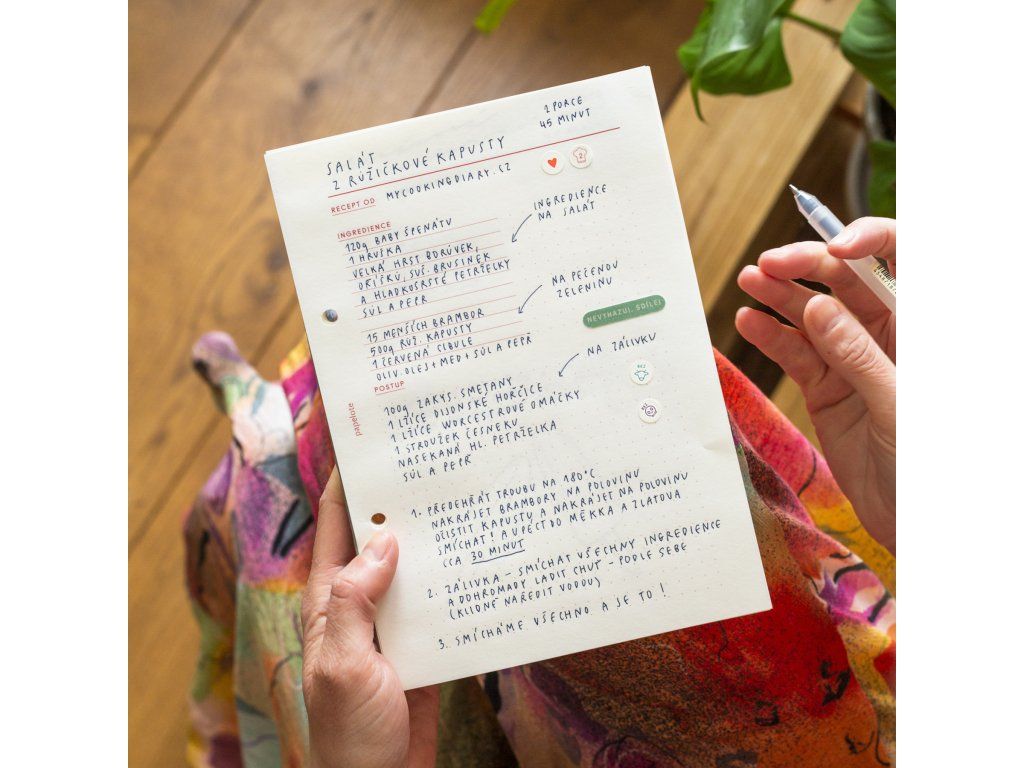 2 PORCE
45 MINUT
SALÁT
Z RŮŽIČKOVÉ KAPUSTY
RECEPT OD MYCOOKINGDIARY.CZ
INGREDIENCE
120g BABY ŠPENÁTU
1 HRUŠKA
VELKÁ HRST BORŮVEK,
OŘÍŠKŮ, SUŠ. BRUSINEK
A HLADKOLISTÉ PETRŽELKY
SŮL A PEPŘ
INGREDIENCE
NA SALÁT
15 MENŠÍCH BRAMBOR
500g RŮŽ. KAPUSTY
1 ČERVENÁ CIBULE
OLIV. OLEJ + MED + SŮL A PEPŘ
NA PEČENOU
ZELENINU
NEVYHAZUJ, SDÍLEJ
POSTUP
100g ZAKYS. SMETANY
1 LŽÍCE DIJONSKÉ HOŘČICE
1 LŽÍCE WORCESTROVÉ OMÁČKY
1 STROUŽEK ČESNEKU
NASEKANÁ HL. PETRŽELKA
SŮL A PEPŘ
NA ZÁLIVKU
BEZ
papelote
1. PŘEDEHŘÁT TROUBU NA 180°C
NAKRÁJET BRAMBORY NA POLOVINU
OČISTIT KAPUSTU A NAKRÁJET NA POLOVINU
SMÍCHAT! A UPÉCT DO MĚKKA A ZLATOVA
CCA 30 MINUT
2. ZÁLIVKA – SMÍCHAT VŠECHNY INGREDIENCE
A DOHROMADY LADIT CHUŤ - PODLE SEBE
(KLIDNĚ NAŘEDIT VODOU)
3. SMÍCHÁME VŠECHNO A JE TO!